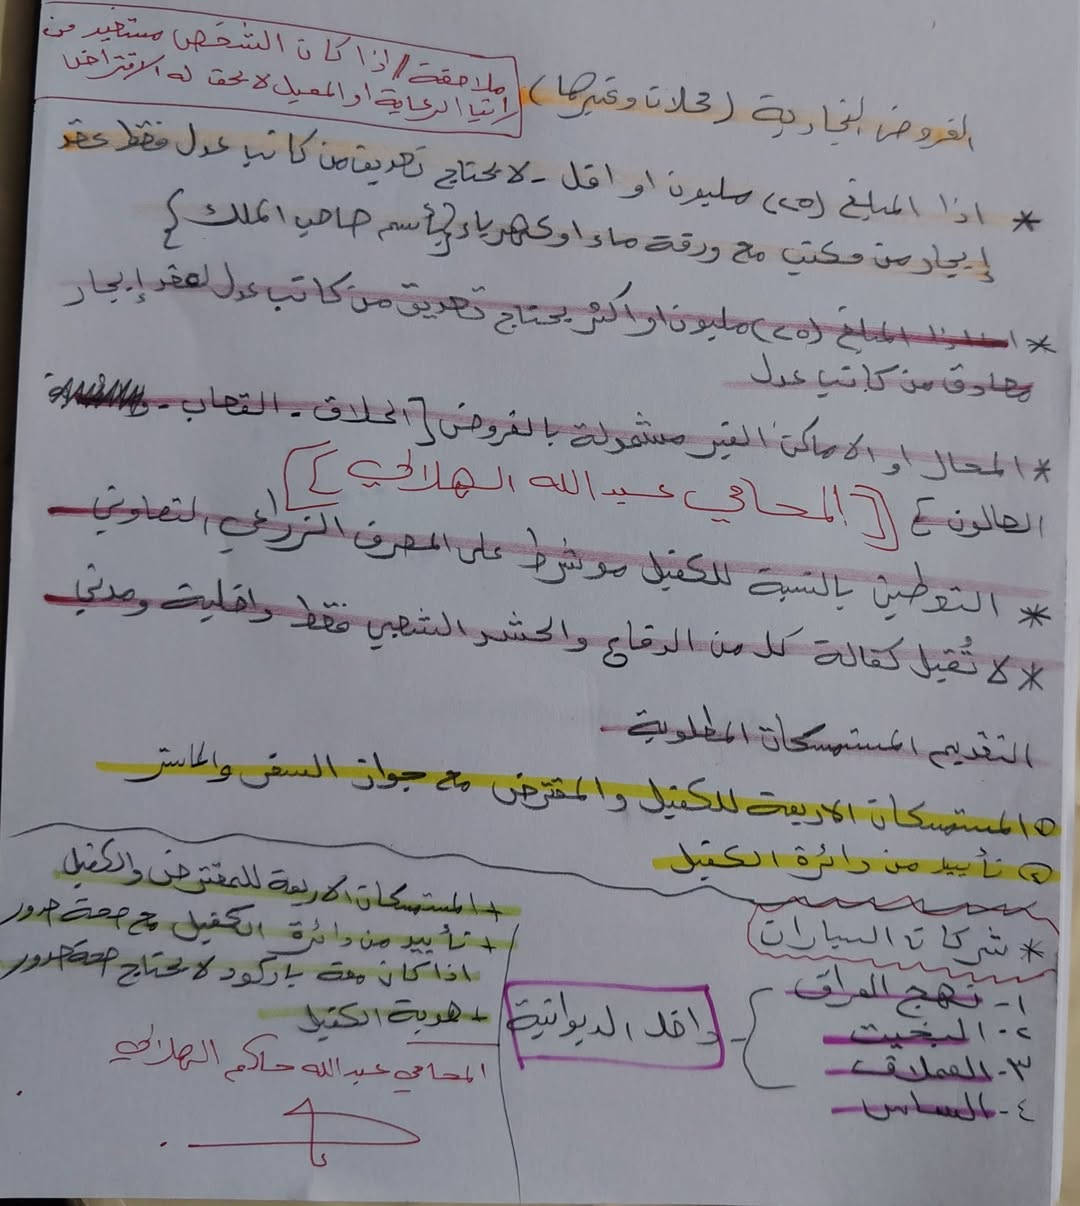 ملاحظة / اذا كان الشخص مستفيد من
راتب الرعاية او المعيل لا يحق له الاقتراض
القروض التجارية (محلات وغيرها)
* اذا المبلغ (٢٥) مليون او اقل - لا يحتاج تصديق من كاتب عدل فقط عقد
إيجار من مكتب مع ورقة ماء او كهرباء {بأسم صاحب الملك}
* اذا المبلغ (٢٥) مليون او اكثر يحتاج تصديق من كاتب عدل لعقد إيجار
مصادق من كاتب عدل
* المحال او الاماكن الغير مشمولة بالقروض [الحلاق - القصاب -
الصالون]
[المحامي عبدالله الهلالي]
* التوطين بالنسبة للكفيل موشرط على المصرف الزراعي التعاوني
* لا تُقبل كفالة كل من الدفاع والحشد الشعبي فقط داخلية ومدني
التقديم المستمسكات المطلوبة
① المستمسكات الاربعة للكفيل والمقترض مع جواز السفر والماستر
② تأييد من دائرة الكفيل
* شركات السيارات
١- نهج العراق
٢- البخيت
٣- العملاق
٤- الساس
داخل الديوانية
+ المستمسكات الاربعة للمقترض والكفيل
+ تأييد من دائرة الكفيل مع صحة صدور
اذا كان معه باركود لا يحتاج صحة صدور
+ هوية الكفيل
المحامي عبدالله حاكم الهلالي